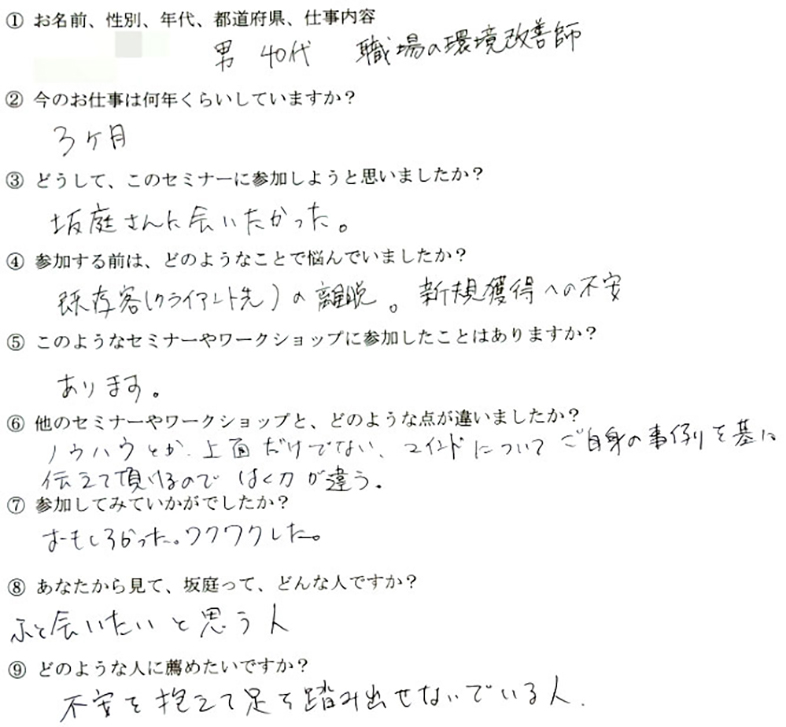 ① お名前、性別、年代、都道府県、仕事内容
男 40代 職場の環境改善師
② 今のお仕事は何年くらいしていますか？
3ヶ月
③ どうして、このセミナーに参加しようと思いましたか？
坂庭さんに会いたかった。
④ 参加する前は、どのようなことで悩んでいましたか？
既存客(クライアント先)の離脱。新規獲得への不安
⑤ このようなセミナーやワークショップに参加したことはありますか？
あります。
⑥ 他のセミナーやワークショップと、どのような点が違いましたか？
ノウハウとか、上面だけでない、マインドについてご自身の事例を基に
伝えて頂けるので はく力が違う。
⑦ 参加してみていかがでしたか？
おもしろかった。ワクワクした。
⑧ あなたから見て、坂庭って、どんな人ですか？
ふと会いたいと思う人
⑨ どのような人に薦めたいですか？
不安を抱えて足を踏み出せないでいる人.